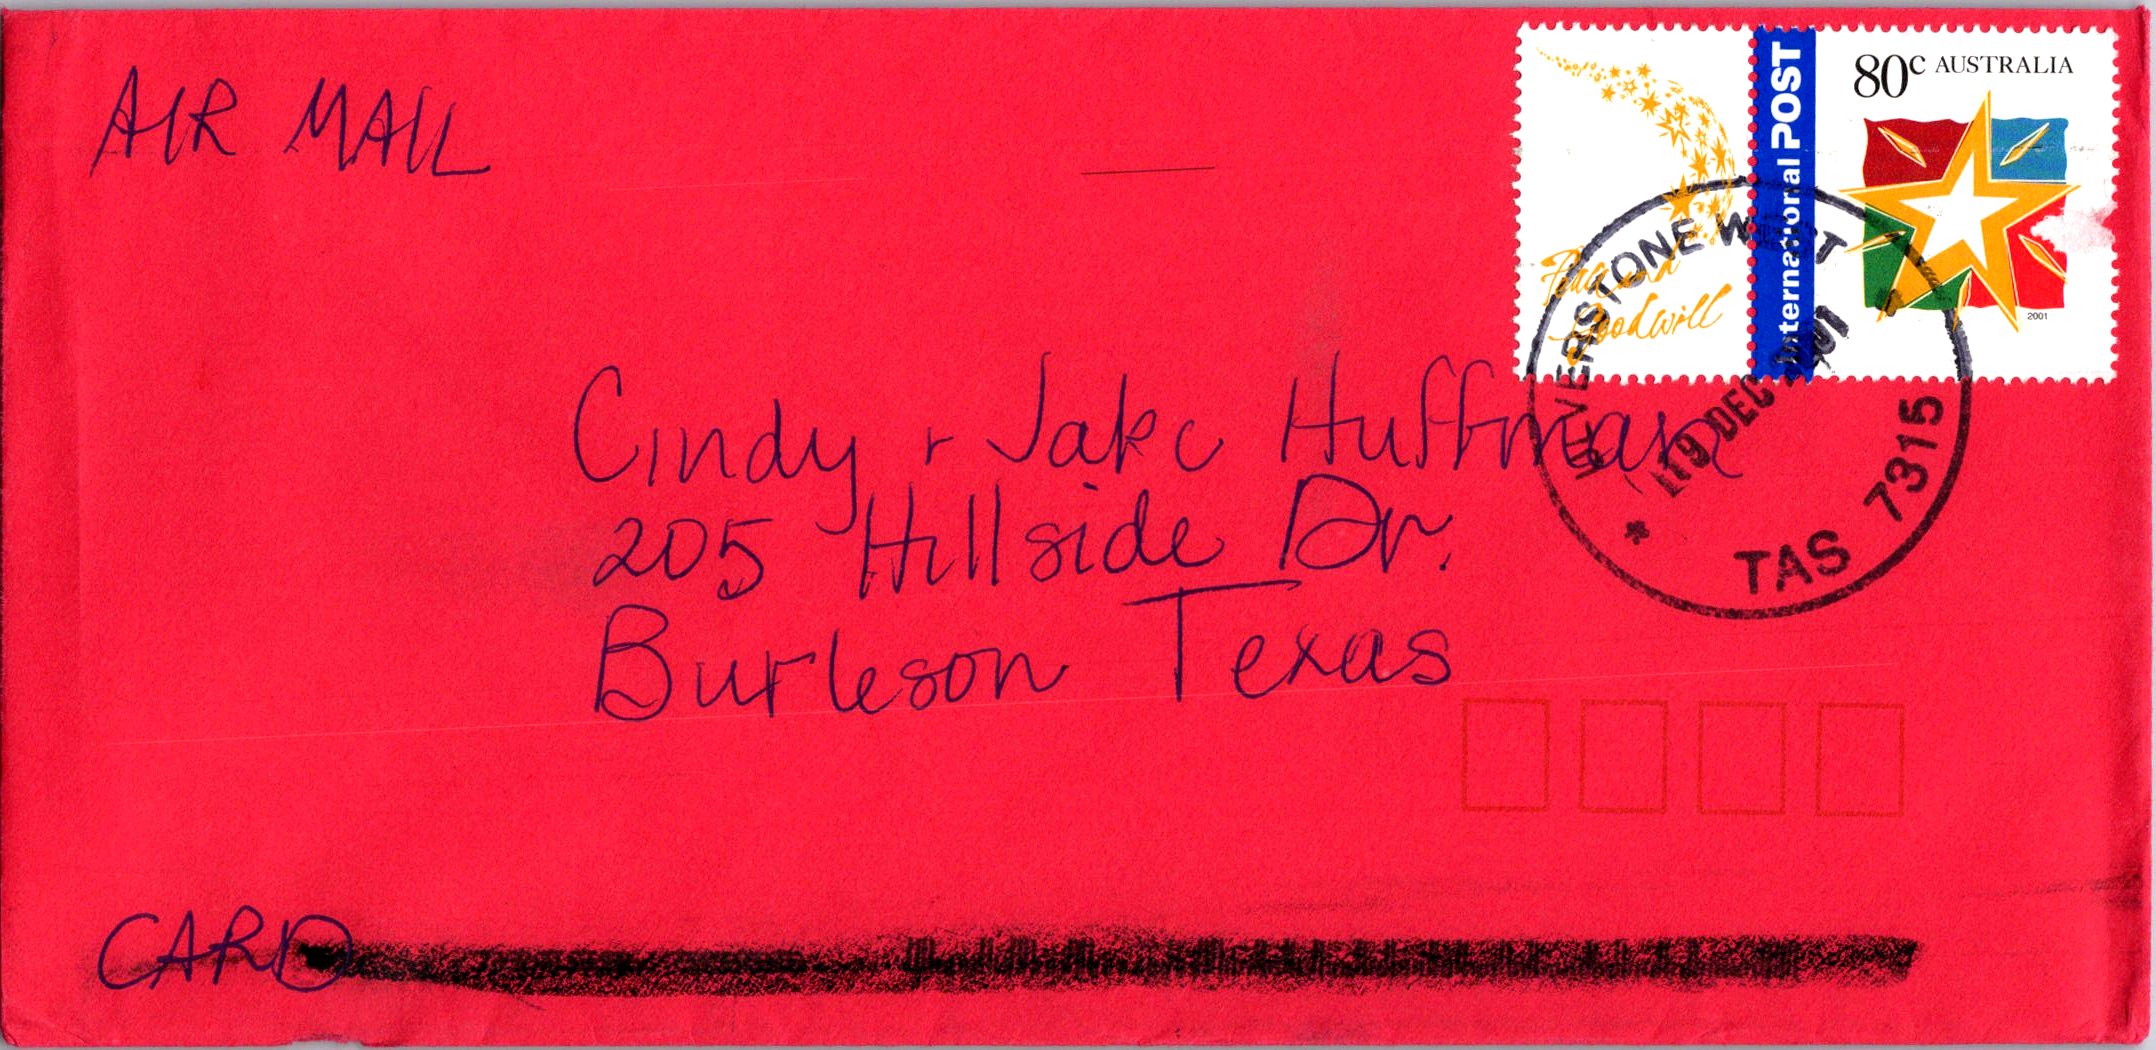 AIR MAIL
80c AUSTRALIA
International POST
Peace and
Goodwill
2001
ULVERSTONE WEST
19 DEC 2001
TAS 7315
Cindy + Jake Huffman
205 Hillside Dr.
Burleson Texas
CARD